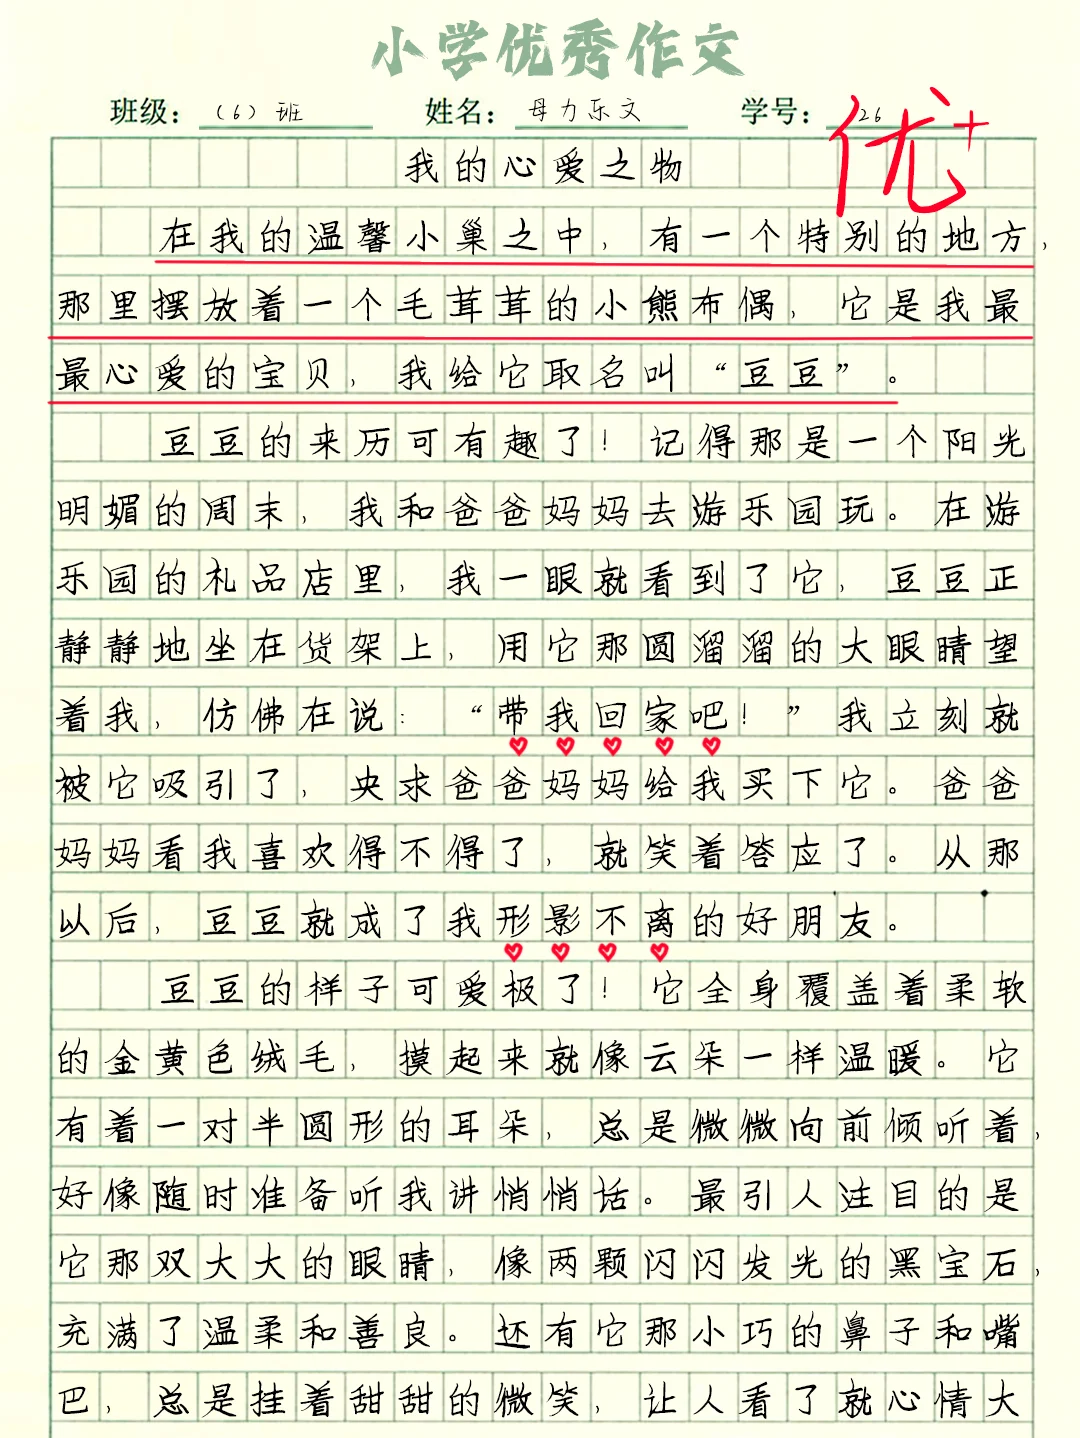 小学优秀作文
班级：（6）班 姓名：母力乐文 学号：26
优+
我的心爱之物
在我的温馨小巢之中，有一个特别的地方，
那里摆放着一个毛茸茸的小熊布偶，它是我最
最心爱的宝贝，我给它取名叫“豆豆”。
豆豆的来历可有趣了！记得那是一个阳光
明媚的周末，我和爸爸妈妈去游乐园玩。在游
乐园的礼品店里，我一眼就看到了它，豆豆正
静静地坐在货架上，用它那圆溜溜的大眼睛望
着我，仿佛在说：“带我回家吧！”我立刻就
被它吸引了，央求爸爸妈妈给我买下它。爸爸
妈妈看我喜欢得不得了，就笑着答应了。从那
以后，豆豆就成了我形影不离的好朋友。
豆豆的样子可爱极了！它全身覆盖着柔软
的金黄色绒毛，摸起来就像云朵一样温暖。它
有着一对半圆形的耳朵，总是微微向前倾听着，
好像随时准备听我讲悄悄话。最引人注目的是
它那双大大的眼睛，像两颗闪闪发光的黑宝石，
充满了温柔和善良。还有它那小巧的鼻子和嘴
巴，总是挂着甜甜的微笑，让人看了就心情大